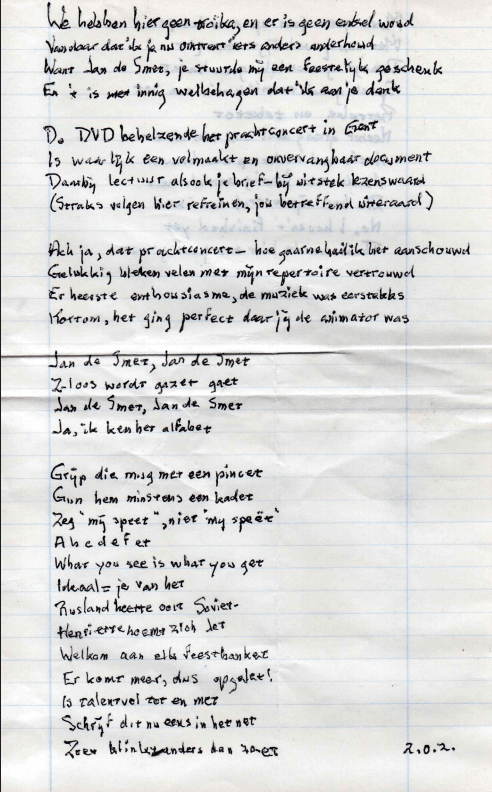 We hebben hier geen troika, en er is geen enkel woud
Vandaar dat 'k je nu omtrent iets anders onderhoud
Want Jan de Smet, je stuurde mij een feestelijk geschenk
En 't is met innig welbehagen dat 'k aan je denk
De DVD behelzende het prachtconcert in Gent
Is waarlijk een volmaakt en onvervangbaar document
Daarbij lectuur alsook je brief – bij uitstek lezenswaard
(Straks volgen hier refreinen, jou betreffend uiteraard)
Ach ja, dat prachtconcert – hoe gaarne had ik het aanschouwd
Gelukkig bleken velen met mijn repertoire vertrouwd
Er heerste enthousiasme, de muziek was eersteklas
Kortom, het ging perfect daar jij de animator was
Jan de Smet, Jan de Smet
Z-loos wordt gazet gaet
Jan de Smet, Jan de Smet
Ja, ik ken het alfabet
Grijp die mug met een pincet
Gun hem minstens een kadet
Zeg "mij speet", niet "my speët"
A b c d e f e t
What you see is what you get
Ideaal = je van het
Rusland heette ooit Sovjet-
Henriette noemt zich Jet
Welkom aan elk feestbanket
Er komt meer, dus opgelet!
Is talentvol tot en met
Schrijf dit nu eens in het net
Zoet klinkt anders dan zoet
2.0.2.